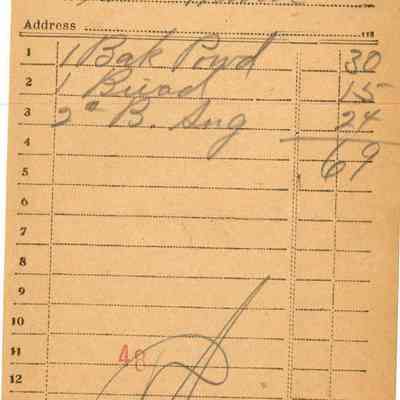 Address
1 1 Bak Powd 30
2 1 Bread 15
3 2# B. Sug 24
4 69
5
6
7
8
9
10
11 48
12